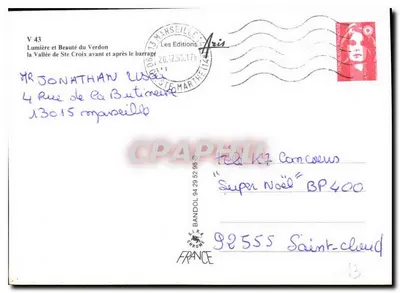 V 43
Lumière et Beauté du Verdon
la Vallée de Ste Croix avant et après le barrage
Les Editions Aris
MARSEILLE
STE MARTHE
MR JONATHAN
4 Rue de la
13015 Marseille
CPARAMA
BANDOL 94 29 52 98
K7 Concours
"Super Noël" BP 400
92555 Saint-cloud
FRANCE
13